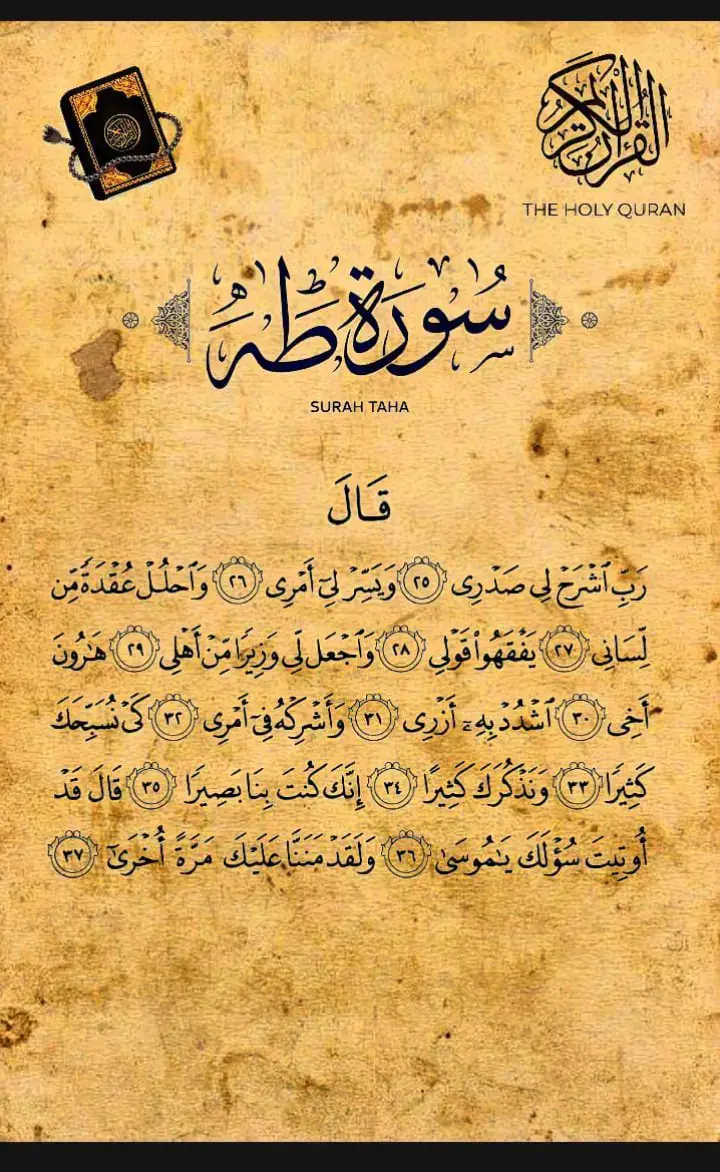 القرآن الكريم
THE HOLY QURAN
سُورَةُ طَهَ
SURAH TAHA
قَالَ
رَبِّ ٱشْرَحْ لِى صَدْرِى ٢٥ وَيَسِّرْ لِىٓ أَمْرِى ٢٦ وَٱحْلُلْ عُقْدَةً مِّن
لِّسَانِى ٢٧ يَفْقَهُوا۟ قَوْلِى ٢٨ وَٱجْعَل لِّى وَزِيرًا مِّنْ أَهْلِى ٢٩ هَٰرُونَ
أَخِى ٣٠ ٱشْدُدْ بِهِۦٓ أَزْرِى ٣١ وَأَشْرِكْهُ فِىٓ أَمْرِى ٣٢ كَىْ نُسَبِّحَكَ
كَثِيرًا ٣٣ وَنَذْكُرَكَ كَثِيرًا ٣٤ إِنَّكَ كُنتَ بِنَا بَصِيرًا ٣٥ قَالَ قَدْ
أُوتِيتَ سُؤْلَكَ يَٰمُوسَىٰ ٣٦ وَلَقَدْ مَنَنَّا عَلَيْكَ مَرَّةً أُخْرَىٰٓ ٣٧